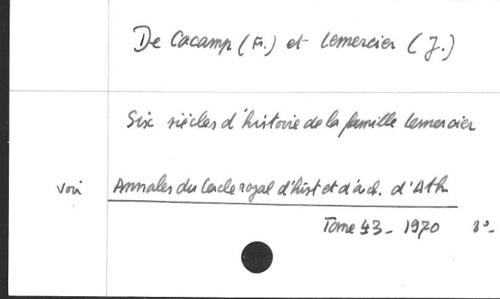 De Cacamp (Fr.) et Lemercier (J.)
Six siècles d'histoire de la famille Lemercier
voir Annales du Cercle royal d'hist et d'arch. d'Ath
Tome 43 - 1970 8°-